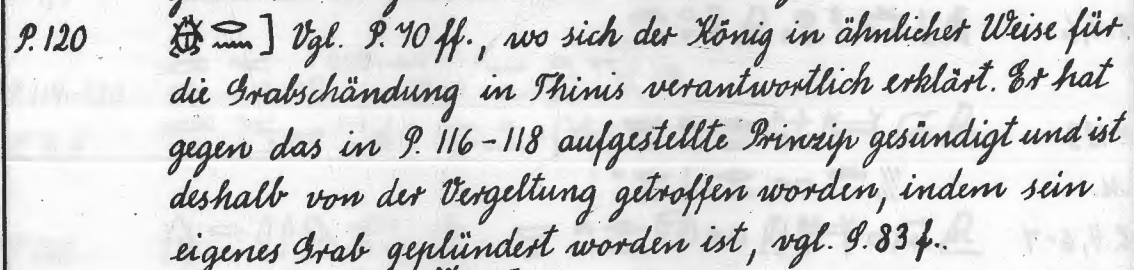 P. 120 𓆣𓂋𓈖 ] Vgl. P. 70 ff., wo sich der König in ähnlicher Weise für
die Grabschändung in Thinis verantwortlich erklärt. Er hat
gegen das in P. 116-118 aufgestellte Prinzip gesündigt und ist
deshalb von der Vergeltung getroffen worden, indem sein
eigenes Grab geplündert worden ist, vgl. P. 83 f..